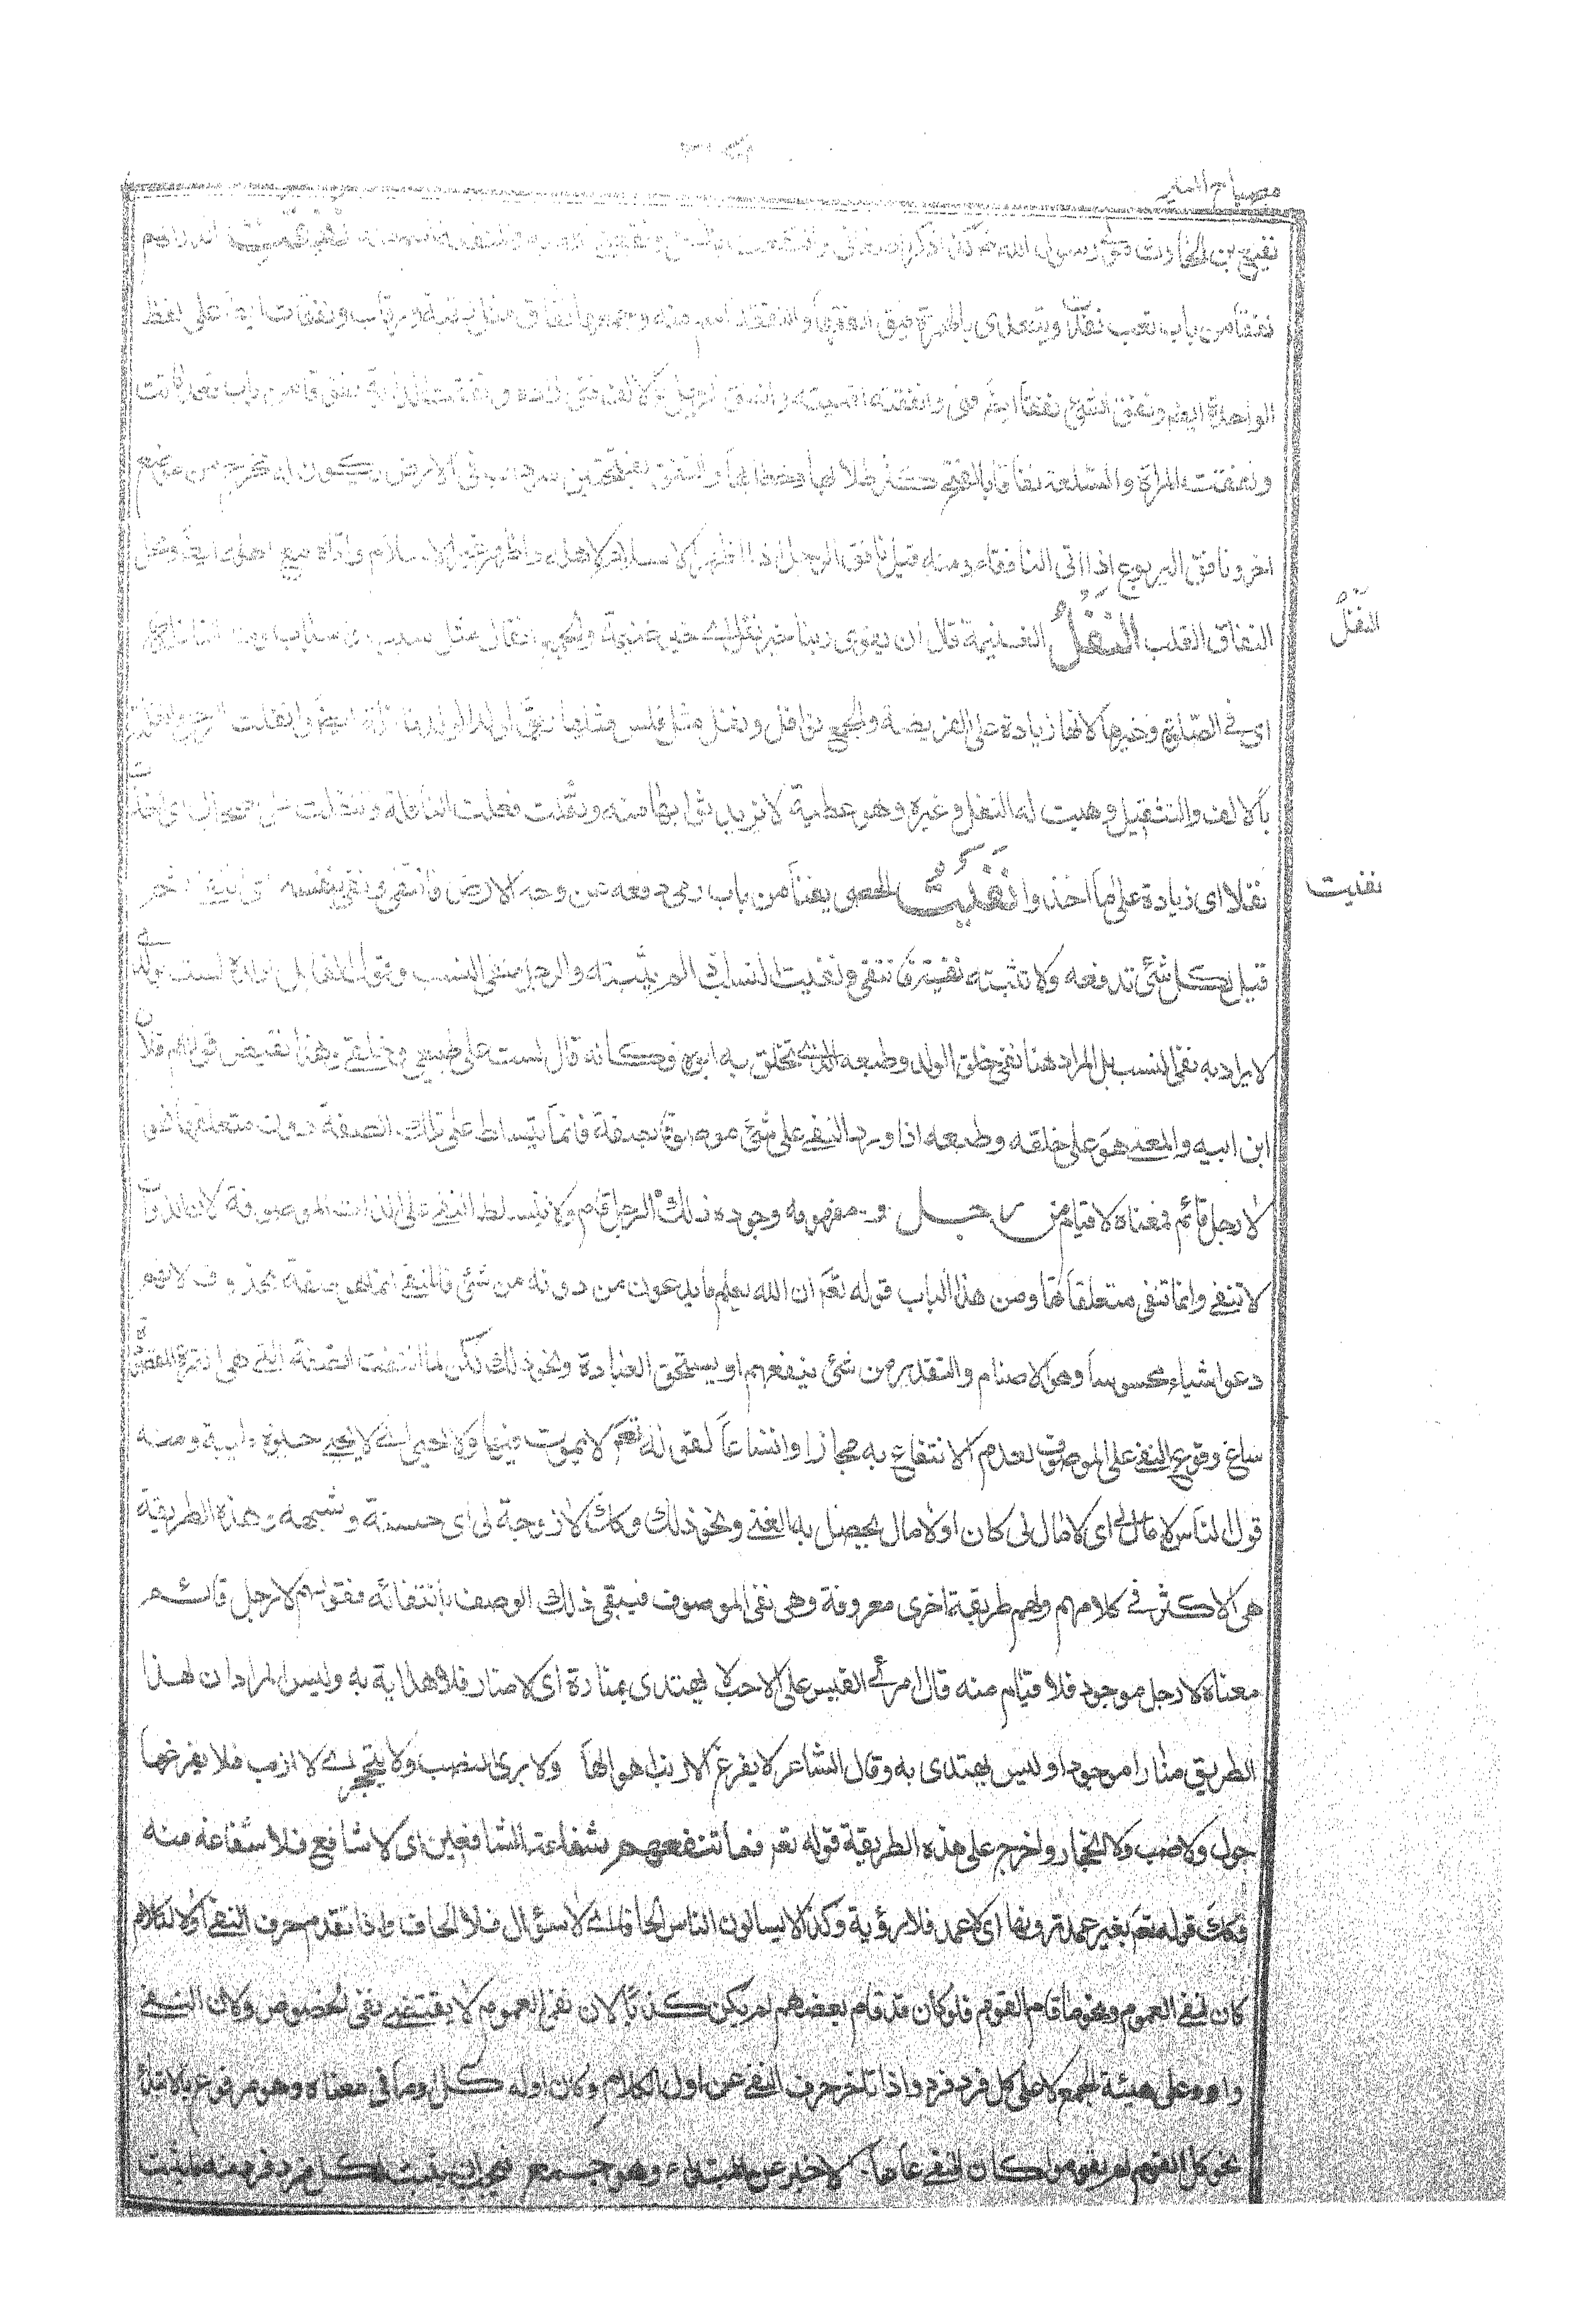 مصباح المنير
نفيع بن الحارث مولى رسول الله
نفقا من باب تعب نفدت ويتعدى بالهمزة فيق انفقتها والنفقة اسم منه وجمعها نفاق مثل رقبة ورقاب ونفقات ايضا على لفظ
الواحدة ايضا ونفق الشئ نفقا ايضا فنى وانفقته افنيته وانفق الرجل بالالف فنى زاده ونفقت الدابة نفوقا من باب قعد ماتت
ونفقت المراة والسلعة نفاقا بالفتح كثر طلابها وخطابها والنفق بفتحتين سرب فى الارض يكون له مخرج من موضع
اخر ونافق اليربوع اذا اتى النافقاء ومنه قيل نافق الرجل اذا اظهر الاسلام لاهله واظهر غير الاسلام واتاه مع اهله ايضا ومحل
النفاق القلب النفل الغنيمة قال ان تقوى ربنا خير نفل اى خير غنيمة والجمع انفال مثل سبب واسباب ومنه النافلة
النفل
اى فى الصلوة وغيرها لانها زيادة على الفريضة والجمع نوافل ونفل مثل فلس مثلها ويق لولد الولد نافلة ايضا وانفلت الرجل ونفلته
بالالف والتثقيل وهبت له النفل وغيره وهو عطية لا تريد ثوابها منه وتنفلت فعلت النافلة وتنفلت على اصحابى اى اخذت
نفلا اى زيادة على ما اخذوا نفيت الحصى نفيا من باب رمى دفعه عن وجه الارض فانتفى ونفى بنفسه اى انتفى ثم
نفيت
قيل لكل شئ تدفعه ولا تثبته نفيته فانتفى ونفيت النسب اذا لم يثبته والرجل منفى النسب وقول القائل لولده لست بولدى
لا يراد به نفى النسب بل المراد هنا نفى خلق الولد وطبعه الذى تخلق به ابوه فكانه قال لست على طبعى وخلقى وهذا نقيض قولهم فلان
ابن ابيه والمعنى هو على خلقه وطبعه اذا ورد النفى على شئ موصوف بصفة فانما يتسلط على تلك الصفة دون متعلقها نحو
لا رجل قائم فمعناه لا قيام من رجل و مفهومه وجود ذلك الرجل قام ولا يتسلط النفى على الذات الموصوفة لان الذوات
لا تنفى وانما تنفى متعلقاتها ومن هذا الباب قوله تعم ان الله يعلم ما يدعون من دونه من شئ فالمنفى انما هو صفة محذوف لانهم
دعوا شياء محسوسا وهو الاصنام والتقدير من شئ ينفعهم او يستحق العبادة ونحو ذلك لكن لما انتفت الصفة التى هى
ساغ وقوع النفى على الموصوف لعدم الانتفاع به مجازا واتساعا لقوله تعم لا يموت فيها ولا يحيى اى لا يحيى حيوة طيبة ومنه
قول الناس لا مال لى اى لا مال لى كان او لا مال يحصل به الغنى ونحو ذلك وكك لا زوجة لى اى حسنة وشبهه وهذه الطريقة
هى الاكثر فى كلامهم ولهم طريقة اخرى معروفة وهى نفى الموصوف فيبقى ذلك الوصف بانتفائه فقولهم لا رجل قائم
معناه لا رجل موجود فلا قيام منه قال امرئ القيس على لاحب لا يهتدى بمنارة اى لا منار فلا هداية به وليس المراد ان لهذا
الطريق منارا موجودا وليس يهتدى به وقال الشاعر لا يفزع الارنب اهوالها ولا يرى الضب ينجحر اى لا ارنب فلا يفزعها
هول ولا ضب ولا انجحار وخرج على هذه الطريقة قوله تعم فما تنفعهم شفاعة الشافعين اى لا شافع فلا شفاعة منه
فكك قوله تعم بغير عمد ترونها اى لا عمد فلا رؤية وكذا لا يسالون الناس الحافا اى لا سؤال فلا الحاف واذا تقدم حرف النفى اول الكلام
كان لنفى العموم ونحو ما قام القوم فلو كان قد قام بعضهم لم يكن كذبا لان نفى العموم لا يقتضى نفى الخصوص وكان النفى
وارد على هيئة الجمع لا على كل فرد فرد واذا تاخر حرف النفى عن اول الكلام وكان اوله كل او ما فى معناه وهو مرفوع بالابتداء
نحو كل القوم لم يقوموا كان النفى عاما لا خبر عن المبتداء وهو جمع فيجب ان يثبت لكل فرد فرد منه ما يثبت